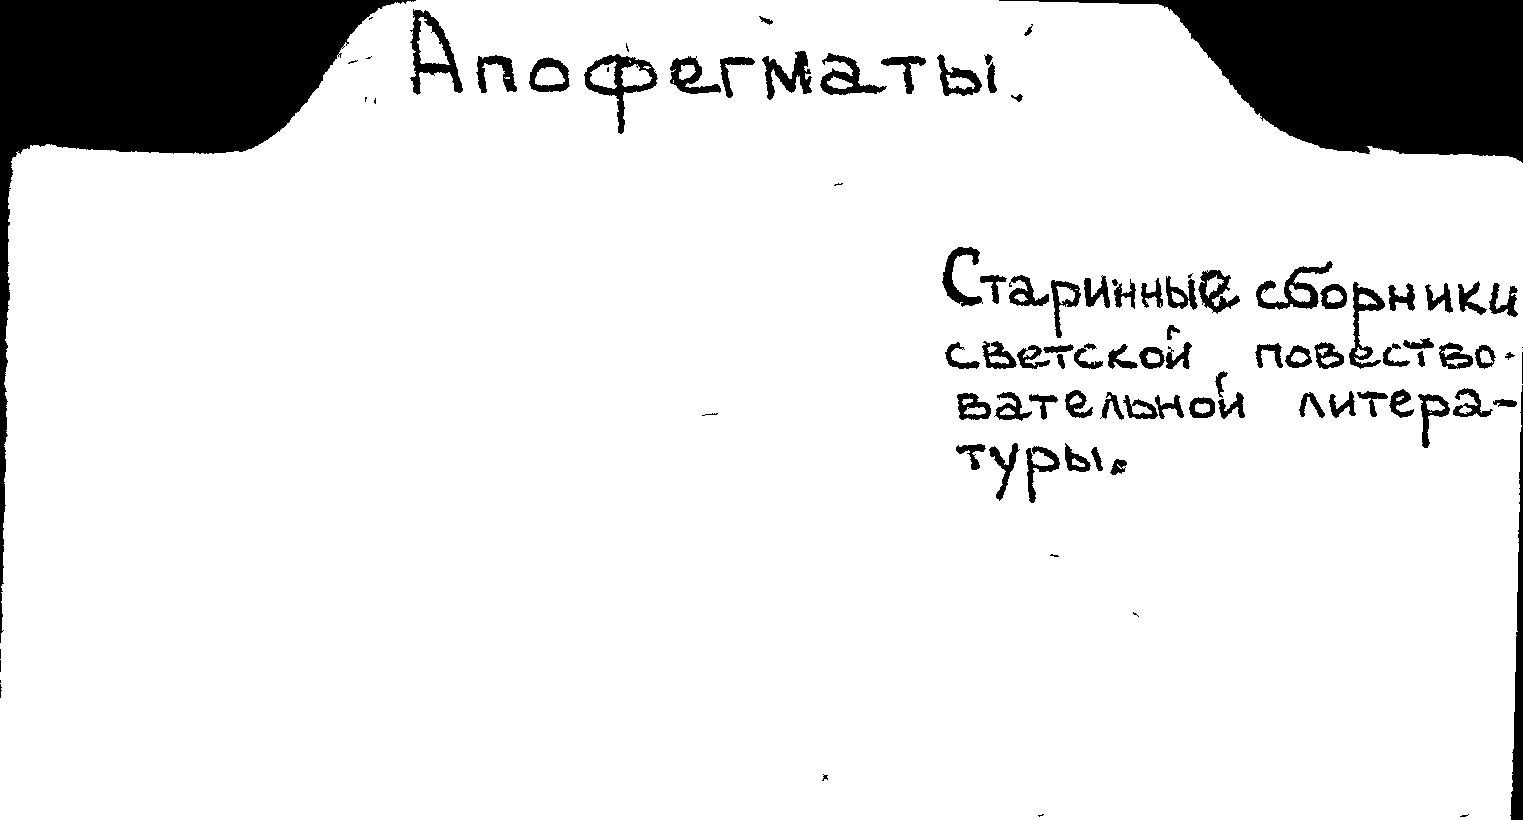 Апофегматы.
Старинные сборники
светской повество-
вательной литера-
туры.